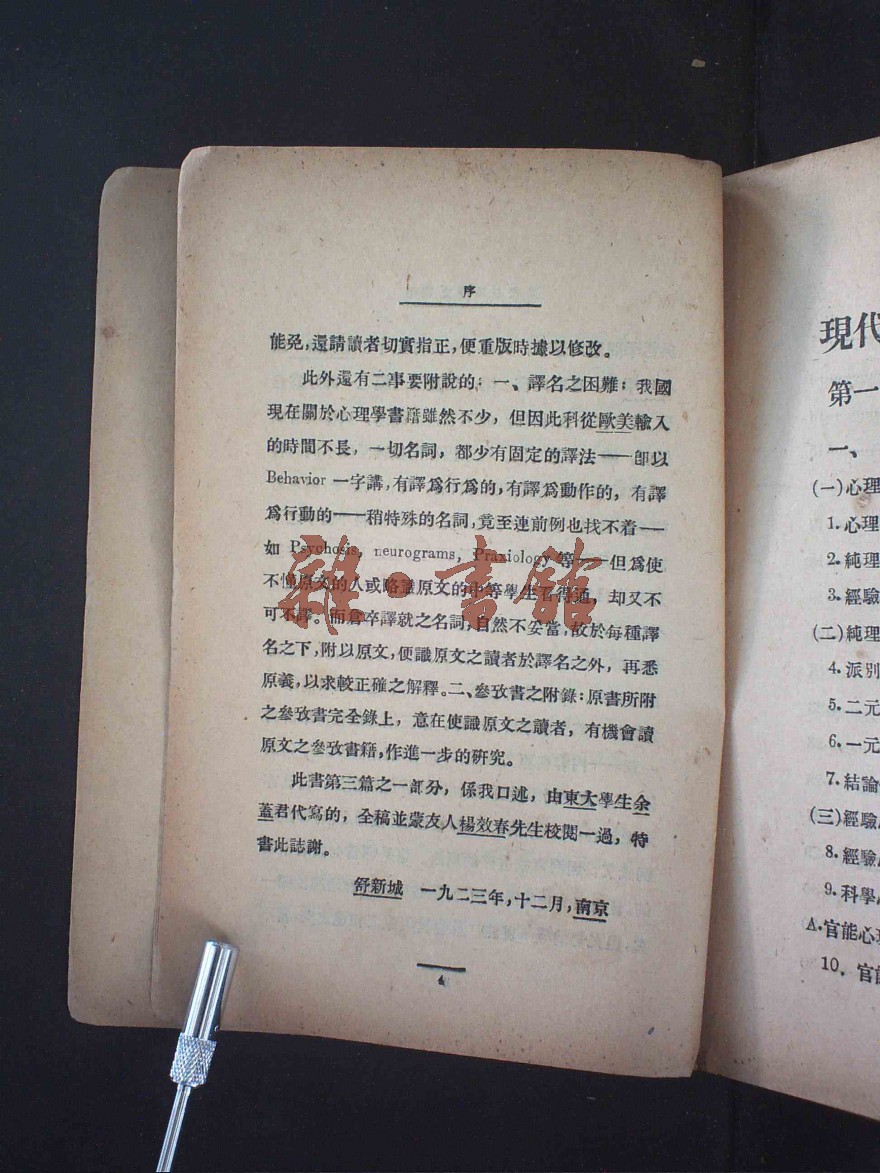 序
能免,還請讀者切實指正,便重版時據以修改。
此外還有二事要附說的:一、譯名之困難:我國
現在關於心理學書籍雖然不少,但因此科從歐美輸入
的時間不長,一切名詞,都少有固定的譯法——卽以
Behavior 一字講,有譯爲行爲的,有譯爲動作的,有譯
爲行動的——稍特殊的名詞,竟至連前例也找不着——
如 Psychosis, neurograms, Praxiology 等——但爲使
不懂原文的人或略識原文的中等學生看得通,却又不
可不譯。而倉卒譯就之名詞,自然不妥當,故於每種譯
名之下,附以原文,便識原文之讀者於譯名之外,再悉
原義,以求較正確之解釋。二、參攷書之附錄:原書所附
之參攷書完全錄上,意在使識原文之讀者,有機會讀
原文之參攷書籍,作進一步的硏究。
此書第三篇之一部分,係我口述,由東大學生余
蓋君代寫的,全稿並蒙友人楊效春先生校閱一過,特
書此誌謝。
舒新城 一九二三年,十二月,南京
4
雜·書館
現代
第一
一、
(一)心理
1.心理
2.純理
3.經驗
(二)純理
4.派別
5.二元
6.一元
7.結論
(三)經驗
8.經驗
9.科學
A.官能心理
10.官能